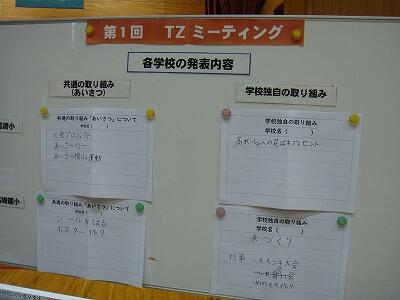 第1回 TZ ミーティング
各学校の発表内容
共通の取り組み
(あいさつ)
学校独自の取り組み
共通の取り組み「あいさつ」について
学校名( )
七色プロジェクト
あいさつ
運動
学校独自の取り組み
学校名( )
高れいしゃへの花はちプレゼント
共通の取り組み「あいさつ」について
学校名( )
シールをはる
ポスター作り
学校独自の取り組み
学校名( )
米づくり
行事 ・もちつき大会